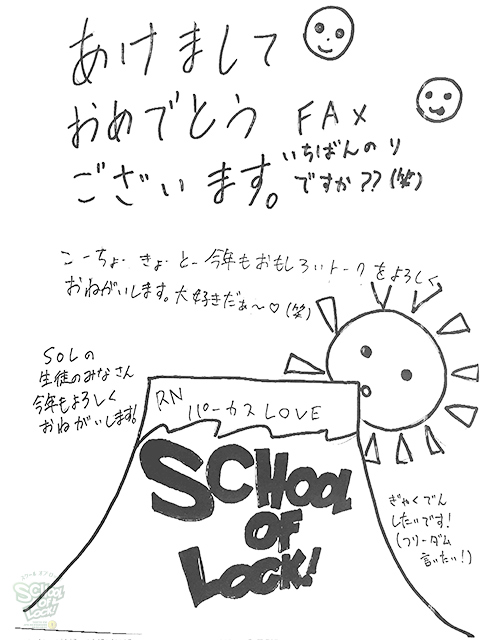 あけまして
おめでとう
ございます。
FAX
いちばんのり
ですか??(笑)
こーちょー きょーとー 今年もおもしろいトークをよろしく
おねがいします。大好きだぁ〜♡(笑)
SOLの
生徒のみなさん
今年もよろしく
おねがいします!
RN
パーカスLOVE
SCHOOL
OF
LOCK!
ぎゃくでん
したいです!
(フリーダム
言いたい!)
SCHOOL
OF
LOCK!